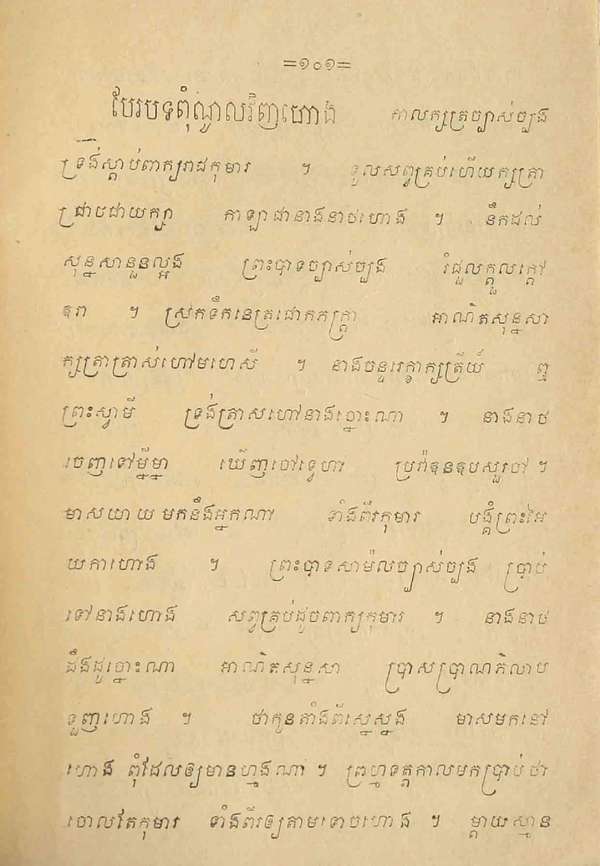 =១០១=
បែរបទពុំណ្ពលវិញហោង កាលក្សត្រច្បាស់ច្បង
ទ្រង់ស្តាប់ពាក្យរាជកុមារ ។ ទូលសព្វគ្រប់ហើយក្សត្រា
ជ្រាបជាយក្សា កាឡាជានាងនាថហោង ។ នឹកដល់
សុន្នសានួនល្អង ព្រះបាទច្បាស់ច្បង រំជួលក្តួលក្តៅ
ឧរា ។ ស្រក់ទឹកនេត្រជោកភក្ត្រា អាណិតសុន្នសា
ក្សត្រាត្រាស់ហៅមហេសី ។ នាងចន្ទរេក្ខាក្សត្រីយ៍ ឮ
ព្រះស្វាមី ទ្រង់ត្រាសហៅនាងឆ្នោះណា ។ នាងនាថ
ចេញទៅម្នីម្នា ឃើញចៅទ្វេហា ប្រក់ឧនឧបសួរចៅ ។
មាសយាយមកនឹងអ្នកណា ទាំងពីរកុមារ បង្គំព្រះអៃ
យកាហោង ។ ព្រះបាទសាម៉លច្បាស់ច្បង ប្រាប់
ទៅនាងហោង សព្វគ្រប់ដូចពាក្យកុមារ ។ នាងនាថ
ដឹងដូច្នោះណា អាណិតសុន្នសា ប្រាសប្រាណភិលាប
ទួញហោង ។ ថាកូនតាំងពីរស្នេស្នង មាសមកនៅ
ហោង ពុំដែលឲ្យមានហ្មងណា ។ ព្រហ្មទត្តកាលមកប្រាប់ថា
ចោលតែកុមារ ទាំងពីរឲ្យតាមទោចហោង ។ ម្តាយស្មាន